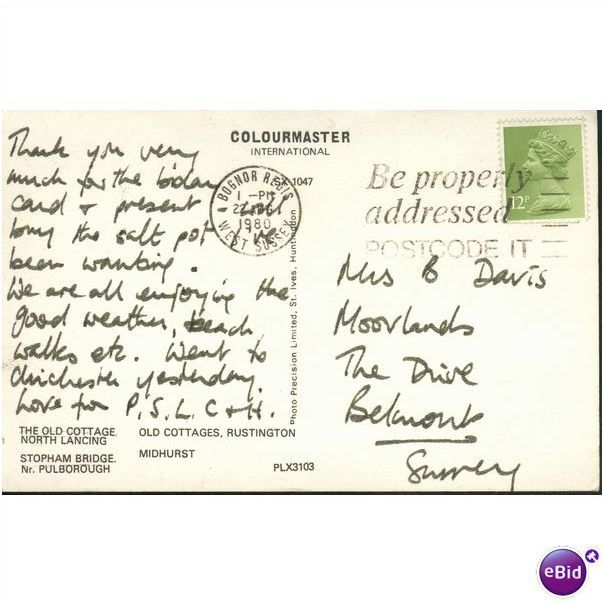 COLOURMASTER
INTERNATIONAL
Thank you very
much for the b'day
card & present I will
buy the salt pot I've
been wanting.
We are all enjoying the
good weather, beach
walks etc. Went to
Chichester yesterday.
Love from P, S, L, C & H.
1047
BOGNOR REGIS
1 - PM
1980
WEST SUSSEX
Be properly
addressed
POSTCODE IT
12P
Mrs B Davis
Moorlands
The Drive
Belmont
Surrey
Photo Precision Limited, St. Ives, Huntingdon
THE OLD COTTAGE,
NORTH LANCING
OLD COTTAGES, RUSTINGTON
STOPHAM BRIDGE,
Nr. PULBOROUGH
MIDHURST
PLX3103
eBid